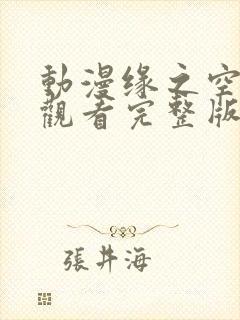 動漫缘之空
觀看完整版
張井海